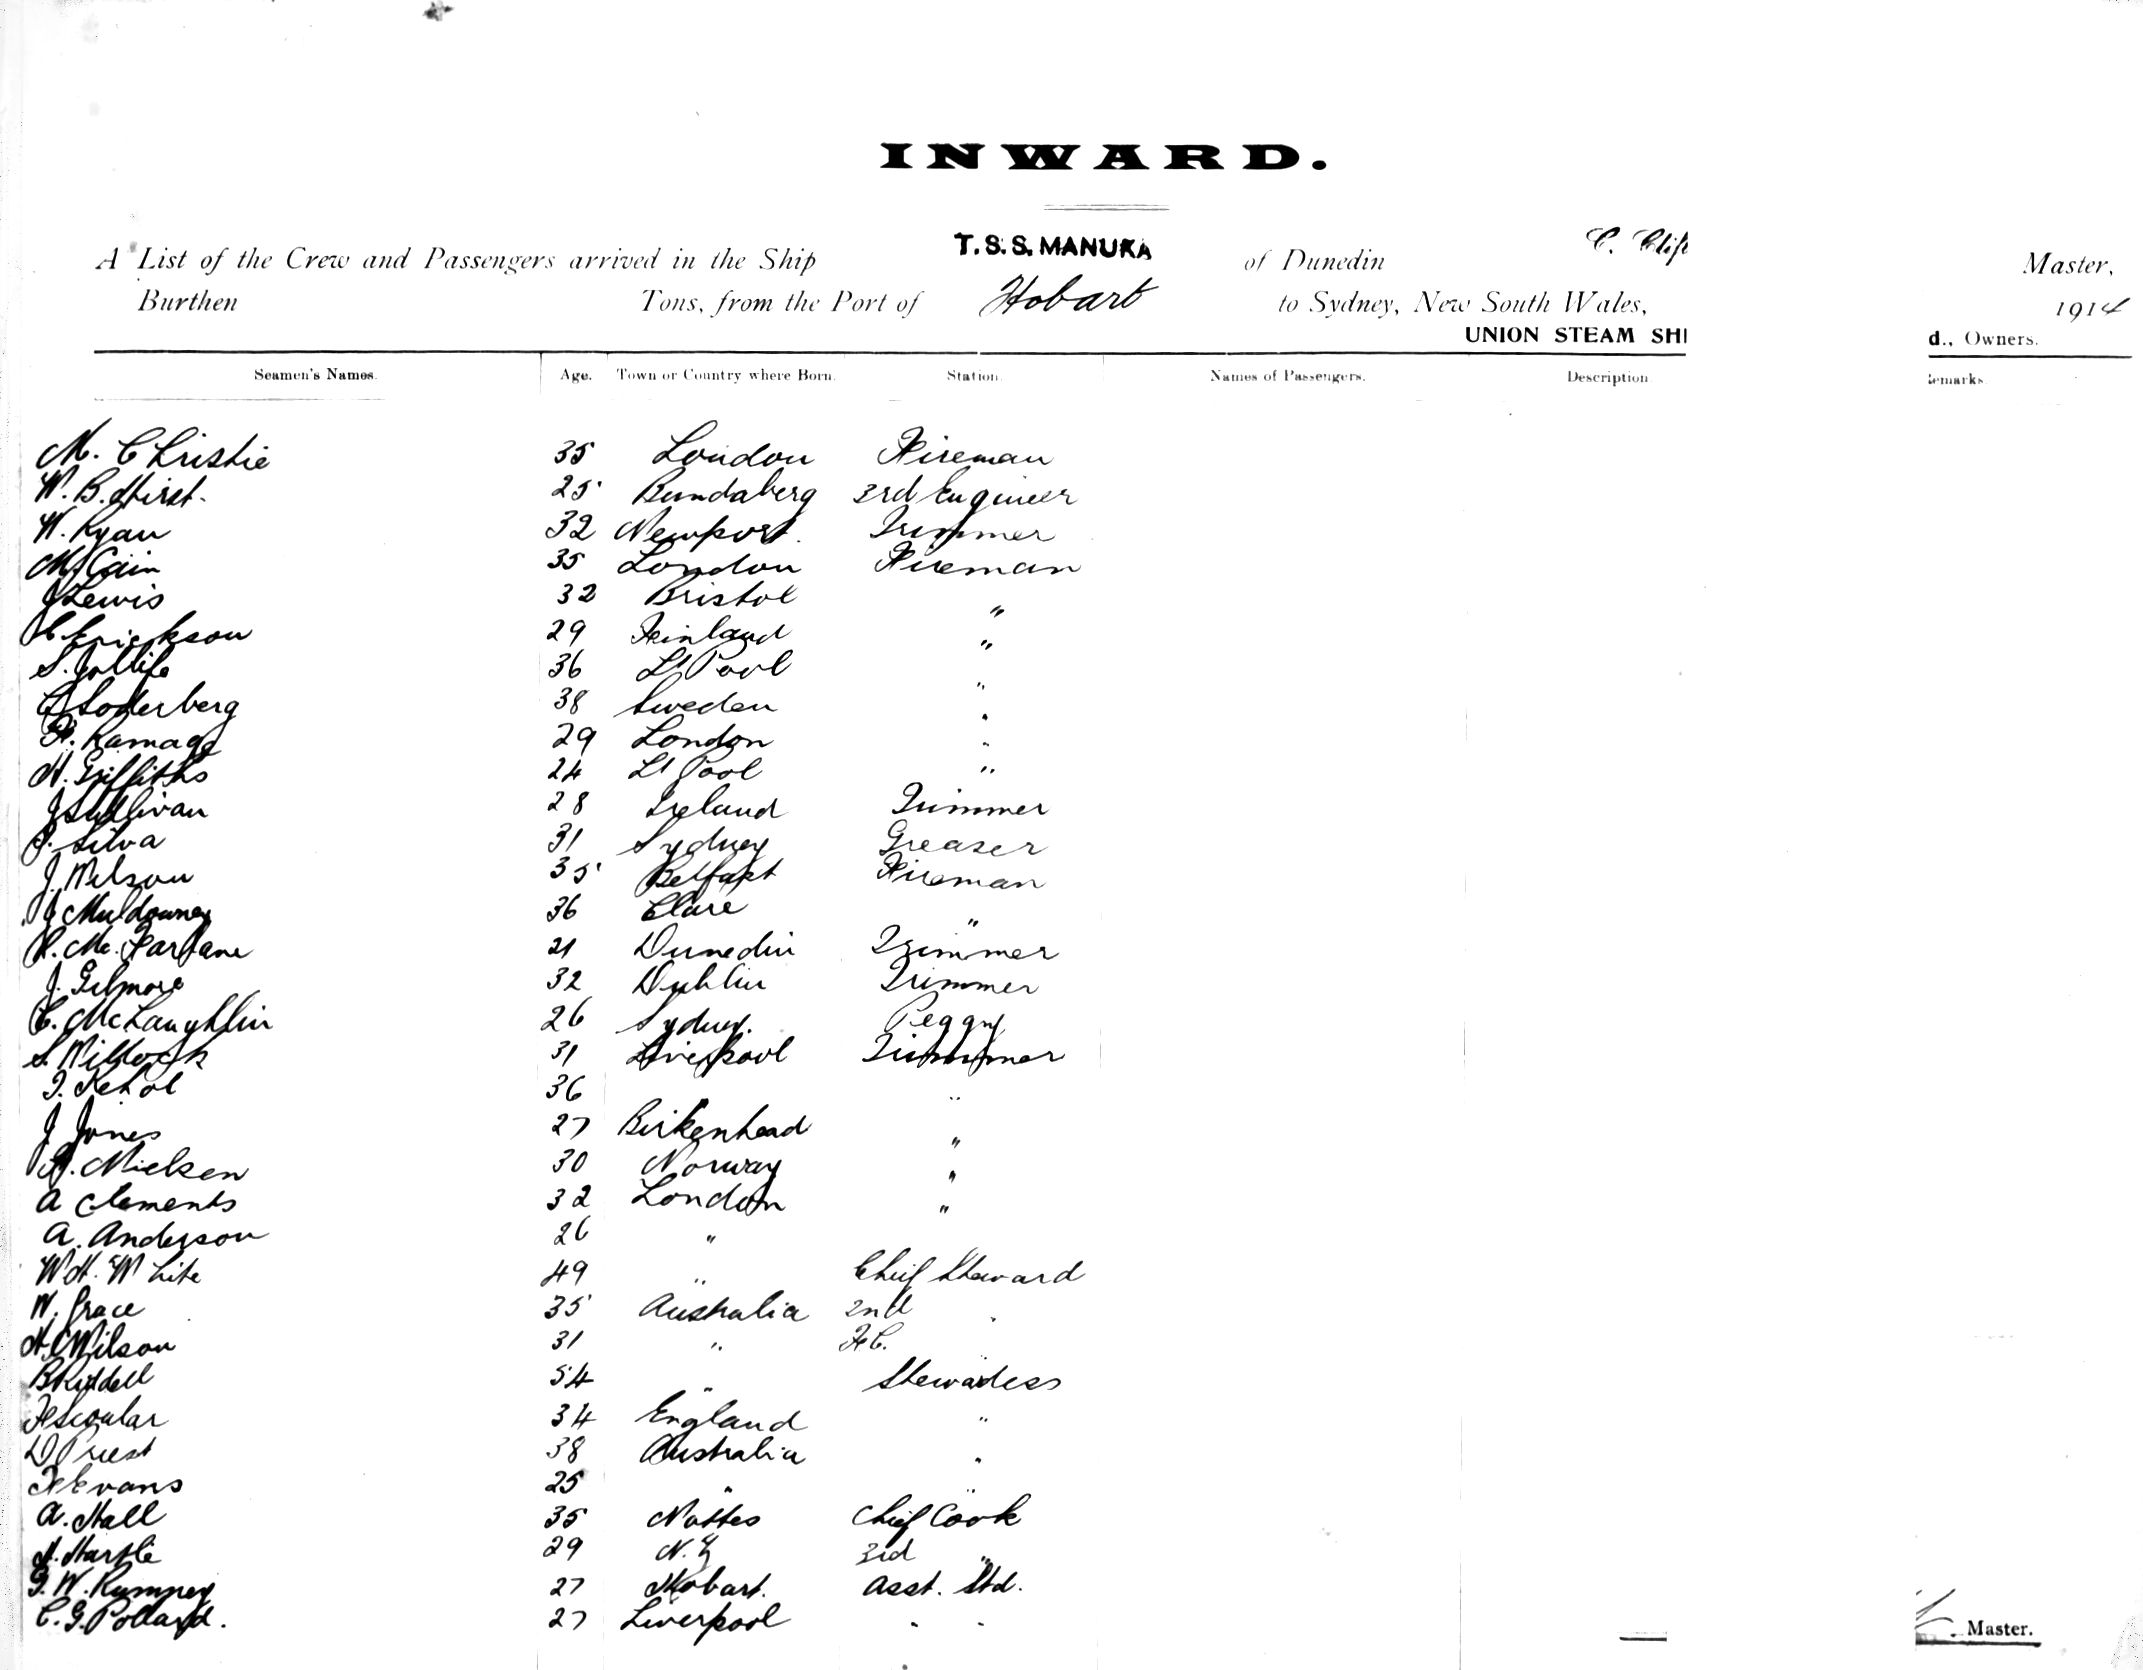 INWARD.
A List of the Crew and Passengers arrived in the Ship T.S.S. MANUKA of Dunedin C. Clif Master,
Burthen Tons, from the Port of Hobart to Sydney, New South Wales, 1914
UNION STEAM SHI d., Owners.
Seamen's Names. Age. Town or Country where Born. Station. Names of Passengers. Description emarks.
M. Christie 35 London Fireman
W. B. Hirst. 25 Bundaberg 3rd Engineer
W. Ryan 32 Newport. Trimmer
M. Cain 35 London Fireman
J Lewis 32 Bristol "
Erickson 29 Finland "
S. Jolliffe 36 L'Pool "
C Soderberg 38 Sweden "
F. Ramage 29 London "
H. Griffiths 24 L'Pool "
J Sullivan 28 Ireland Trimmer
P. Silva 31 Sydney Greaser
J. Nelson 35 Belfast Fireman
J Muldowney 36 Clare "
R. Mc. Farlane 21 Dunedin Trimmer
J. Gilmore 32 Dublin Trimmer
C. McLaughlin 26 Sydney. Peggy
S. Millock 31 Liverpool Trimmer
36 "
J Jones 27 Birkenhead "
Nielsen 30 Norway "
A Clements 32 London "
A. Anderson 26 "
W H. White 49 " Chief Steward
W. Grace 35 Australia 2nd "
H. Wilson 31 " F.C. "
B Riddell 54 " Stewardess
F Scoular 34 England "
D Priest 38 Australia "
F Evans 25 " "
A. Hall 35 Nottes Chief Cook
H. Hartle 29 N.Z 3rd "
G. W. Rumney 27 Hobart. Asst. Std.
C. G. Pollard. 27 Liverpool " "
Master.